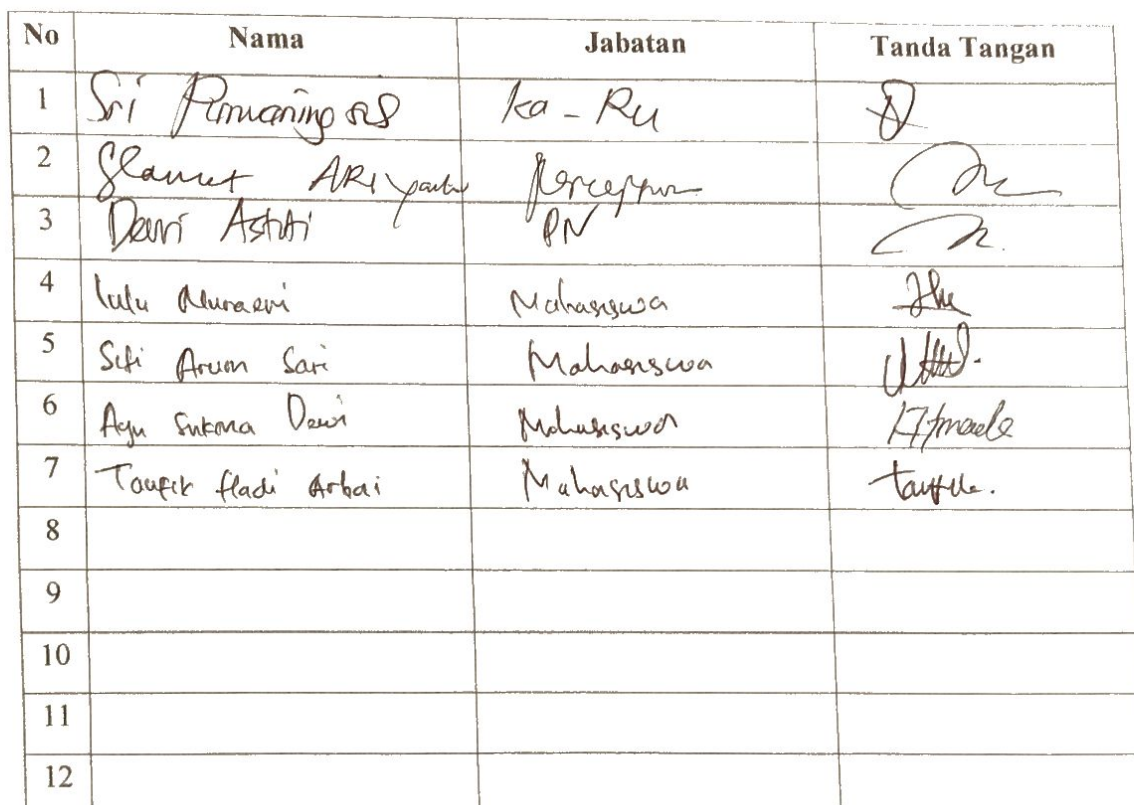 No Nama Jabatan Tanda Tangan
1 Sri Purwaningsih Ka - Ru
2 Slamet ARIyanto Perceptor
3 Dewi Astuti PN
4 lulu Nuraeni Mahasiswa
5 Siti Arum Sari Mahasiswa
6 Ayu Sukma Dewi Mahasiswa
7 Taufik Hadi Mahasiswa taufik.
8
9
10
11
12